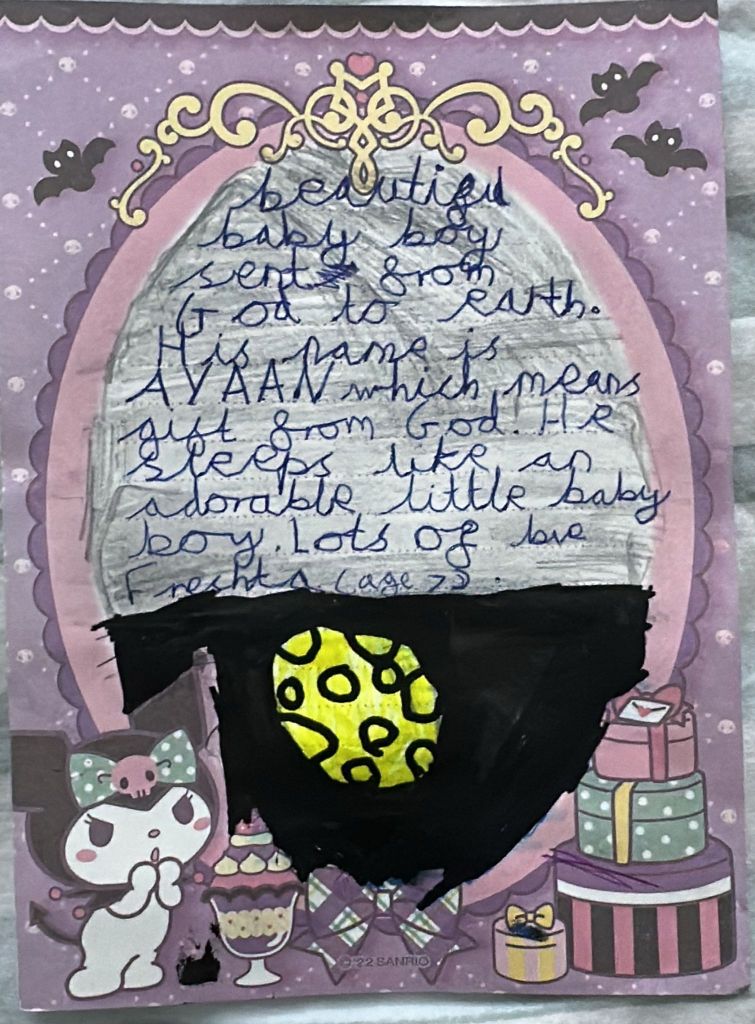 beautiful
baby boy
sent from
God to earth.
His name is
AYAAN which means
gift from God. He
sleeps like an
adorable little baby
boy. Lots of love
Freshta (age 7).
© '22 SANRIO